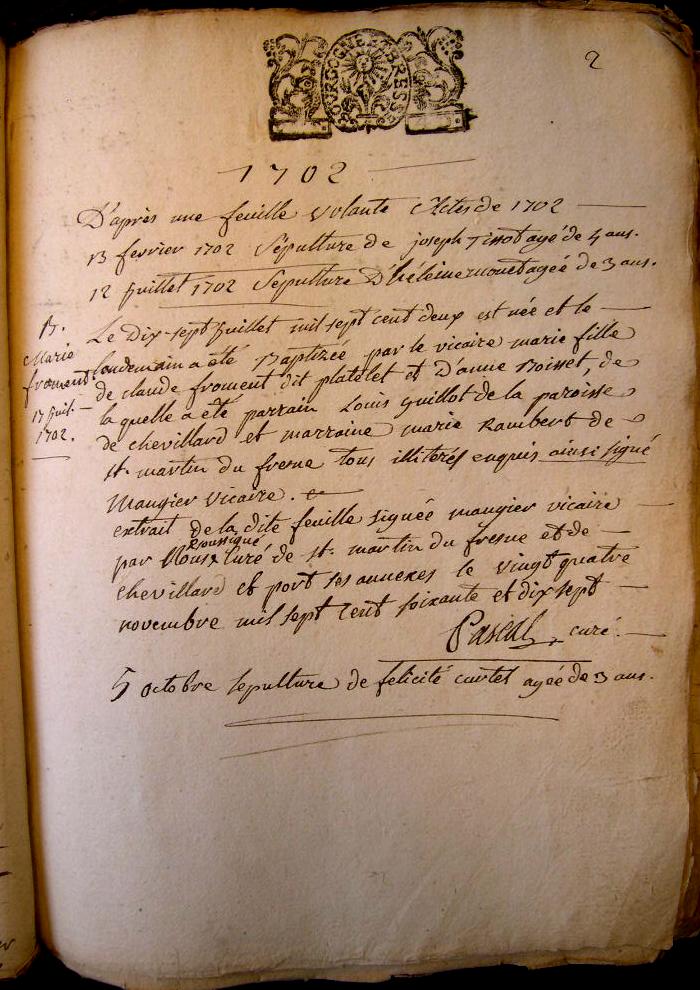 BOURGOGNE ET BRESSE
2
1702
D'après une feuille volante Actes de 1702
13 fevrier 1702 Sépulture de joseph Tissot agé de 4 ans.
12 juillet 1702 Sepulture D'héleine monet agée de 3 ans.
B.
Marie
froment
17 juil.
1702.
Le Dix sept juillet mil sept cent deux est née et le
lendemain a été Baptizée par le vicaire marie fille
de claude froment dit platelet et D'anne Boisset, de
la quelle a été parrain Louis guillot de la paroisse
de chevillard et marraine marie Rambert de
st. martin du fresne tous illiterés enquis ainsi signé
Maugier vicaire.
extrait de la dite feuille signée maugier vicaire
par Nous soussigné curé de st. martin du fresne et de
chevillard et port ses annexes le vingt quatre
novembre mil sept cent soixante et dix sept
Pascal, curé.
5 octobre sepulture de felicité curtet agée de 3 ans.